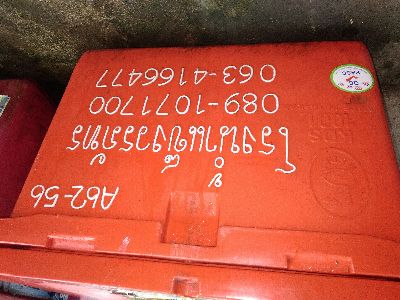 A62-56
โรงน้ำแข็งวรภัทร
089-1071700
063-4166477